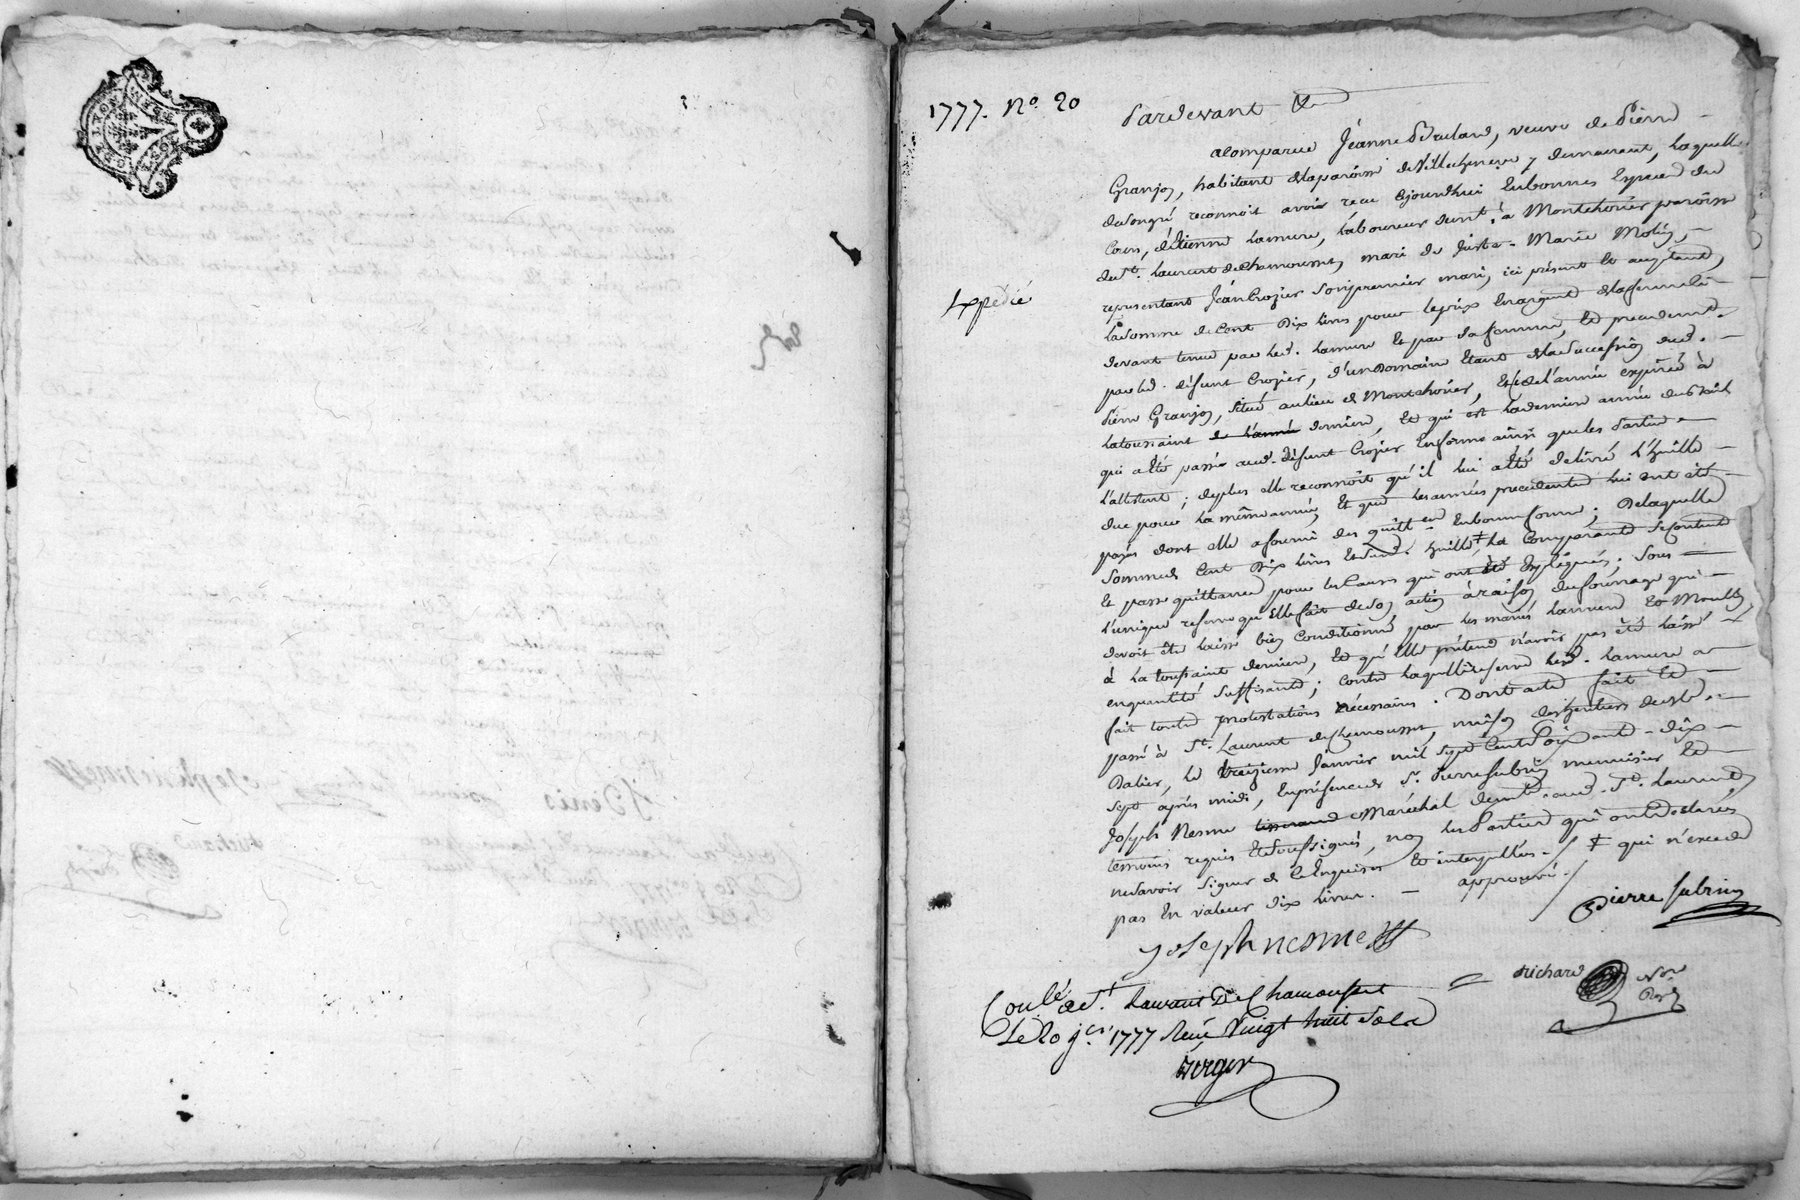 1777. No. 20
Pardevant &c
acomparue Jéanne Brulard, veuve de Pierre
Granjon, habitant dela paroisse de Villechenève y demeurant, laquelle
de songré reconnoit avoir recu ajourdhui en bonnes Especes du
Cours, d'étienne Lamure, laboureur demt. à Montchorier paroisse
de St. Laurent de Chamousset, mari de Justa-Marie Molin,
representant Jéan Crozier son premier mari, ici présent et acceptant,
la somme de cent Dix livres pour le prix En argent dela ferme ci
devant tenue par led. Lamure et par sa femme, et precedemt.
par led. défunt Crozier, d'un Domaine Etant de la Succession dud.
Pierre Granjon, situé au lieu de Montchorier, et de l'année expirée à
la toussaint de l'année derniere, Et qui est la derniere année du Bail
qui a été passé aud. défunt Crozier En forme ainsi que les Parties
l'attestent; deplus elle reconnoit qu'il lui a été delivré l'huille
due pour la même année, Et que les années precedentes lui ont été
payés dont elle a fourni des quitt.ces En bonne forme; De laquelle
Somme de Cent Dix livres Et de lad. huille ‡ la Comparante se contente
Et passe quittance pour les Causes qui ont été Expliqués; sous
l'unique reserve qu'Elle fait de son action à raison du fourrage qui
devoit être laissé bien Conditionné par les mariés Lamure Et Moulin
à la toussaint derniere, Et qu'Elle prétend n'avoir pas été laissé
en quantité suffisante; Contre laquelle reserve led. Lamure a
fait toutes protestations nécessaires. Dont acte fait Et
passé à St. Laurent de Chamousset, maison des héritiers de
Dalier, le treizieme Janvier mil sept Cent Soixante-dix-
sept après midi, En présence de Sr. Pierre Subrin menuisier Et
Joseph Nesme tisserand Maréchal demts. aud. St. Laurent
temoins requis Et soussignés, non les Parties qui ont declarés
ne savoir signer de ce Enquises Et interpellées. / ‡ qui n'excede
pas En valeur dix livres. — approuvé. /
Pierre Subrin
Joseph nesme
Richard Nore Royl
Conlé. a St. Laurant De Chamousset
Le 20 jer. 1777 Reçu Vingt huit Sols
Verger
Expedié